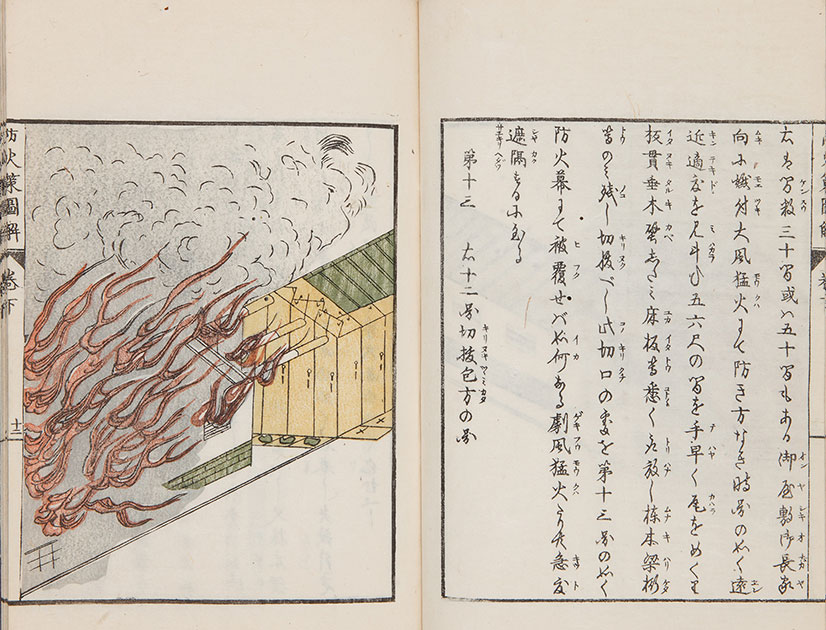 右者間数三十間或ハ五十間もある御屋敷御長家
向に燃付大風猛火にて防き方なき時図の如く遠
近適度を見斗ひ五六尺の間を手早く瓦をめくり
板貫垂木壁したミ床板等悉く取放し棟木梁桁
等のミ残し切抜べし此切口の処を第十三図の如く
防火幕にて被覆せバ如何なる劇風猛火たり共急度
遮隔するに至る
第十三 右十二図切抜包方の図
防火策圖解 巻下 十三